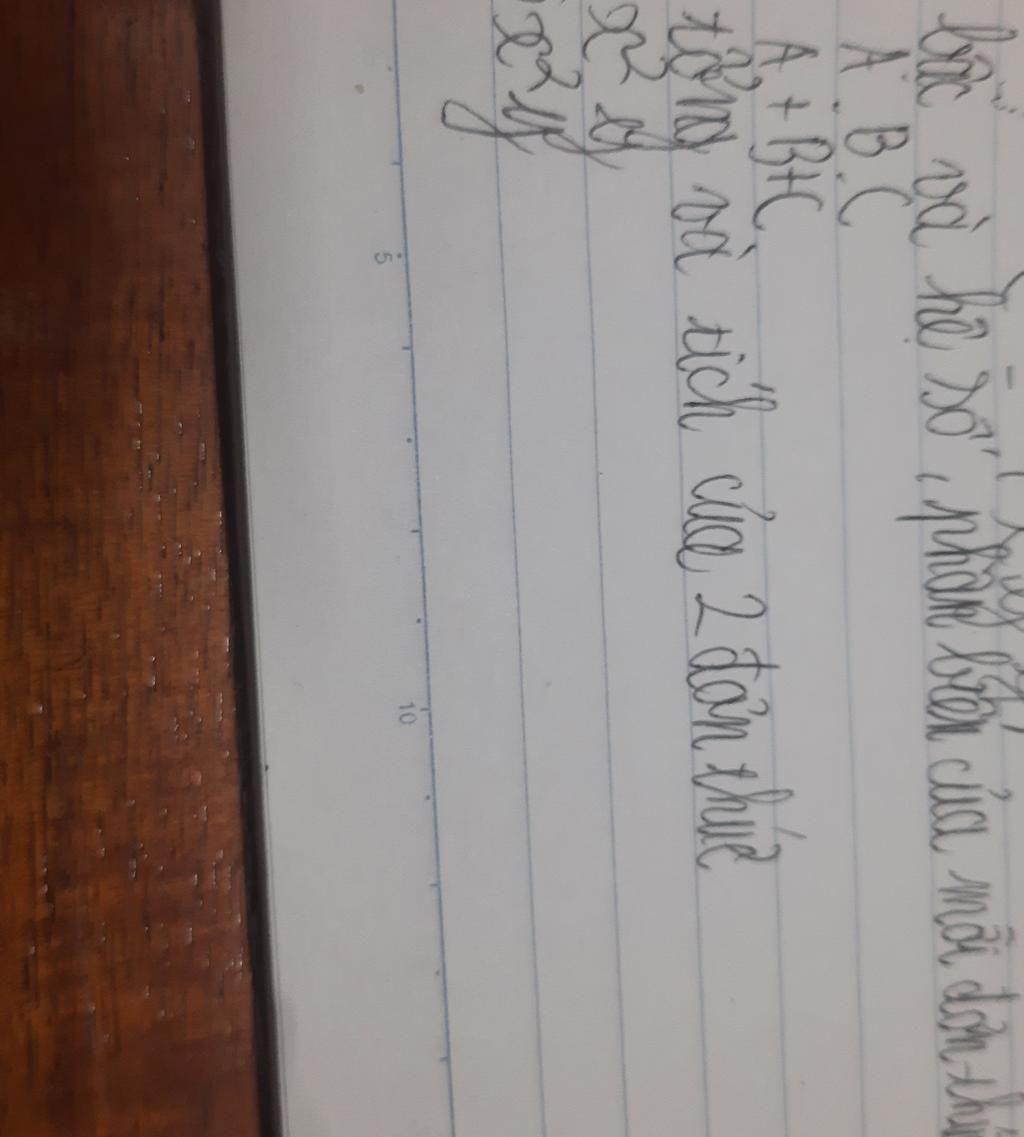 bậc và hệ số, phần biến của mỗi đơn
A. B. C
A + B + C
tổng và tích của 2 đơn thức
x² y
x² y
5
10